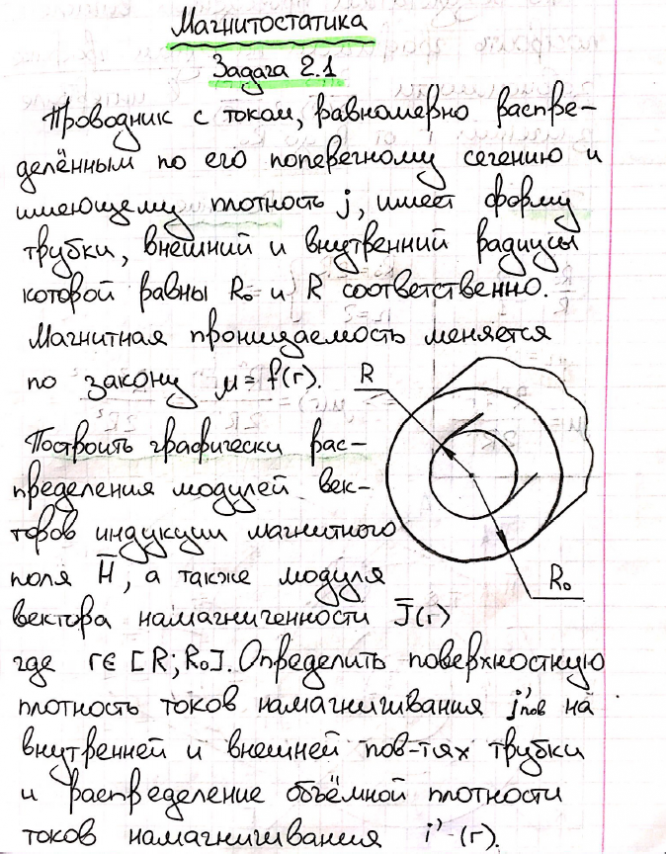 Магнитостатика
Задача 2.1
Проводник с током, равномерно распре-
делённым по его поперечному сечению и
имеющему плотность j, имеет форму
трубки, внешний и внутренний радиусы
которой равны R₀ и R соответственно.
Магнитная проницаемость меняется
по закону μ=f(r).
R
Построить графически рас-
пределения модулей век-
торов индукции магнитного
поля H̄, а также модуля
R₀
вектора намагниченности J̄(r)
где r∈[R;R₀]. Определить поверхностную
плотность токов намагничивания j'пов на
внутренней и внешней пов-тях трубки
и распределение объёмной плотности
токов намагничивания i'(r).